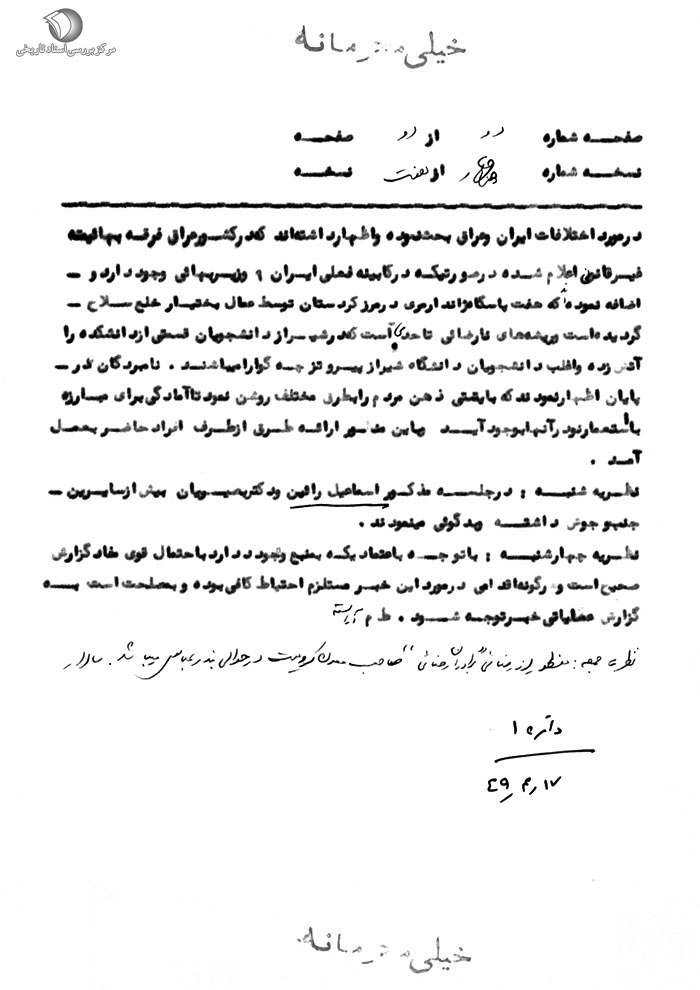 مرکز بررسی اسناد تاریخی
خیلی محرمانه
صفحه شماره دو از دو صفحه
نسخه شماره چهار از هفت نسخه
در مورد اختلافات ایران و عراق بحث نموده و اظهار داشته‌اند که در کشور عراق فرقه بهائیته
غیر قانونی اعلام شده در صورتیکه در کابینه فعلی ایران ۹ وزیر بهائی وجود دارد و -
اضافه نموده‌اند که هفت پاسگاه ژاندارمری در مرز کردستان توسط عمال بختیار خلع سلاح -
گردیده است و ریشه‌های نارضائی تا حدی است که در شیراز دانشجویان قسمتی از دانشکده را
آتش زده و اغلب دانشجویان دانشگاه شیراز پیرو تز چه گوارا میباشند . نامبردگان در -
پایان اظهار نمودند که بایستی ذهن مردم را بطرق مختلف روشن نمود تا آمادگی برای مبارزه
با استعمار نو در آنها بوجود آید و باین منظور ارائه طرق از طرف افراد حاضر بعمل
آمد .
نظریه شنبه : در جلسه مذکور اسماعیل رائین و دکتر بصیریان بیش از سایرین -
جنب و جوش داشته و بدگوئی مینمودند .
نظریه چهارشنبه : با توجه باعتمادیکه بمنبع وجود دارد باحتمال قوی مفاد گزارش
صحیح است و هرگونه اقدامی در مورد این خبر مستلزم احتیاط کافی بوده و بمصلحت است به
گزارش عملیاتی خبر توجه شود . ط م آراسته
نظریه جمعه : منظور از رضائی "برادران رضائی" صاحب معدن کرومیت در حوالی بندرعباس میباشد . سالار
دایره ۱
۴۹٫۳٫۱۷
خیلی محرمانه